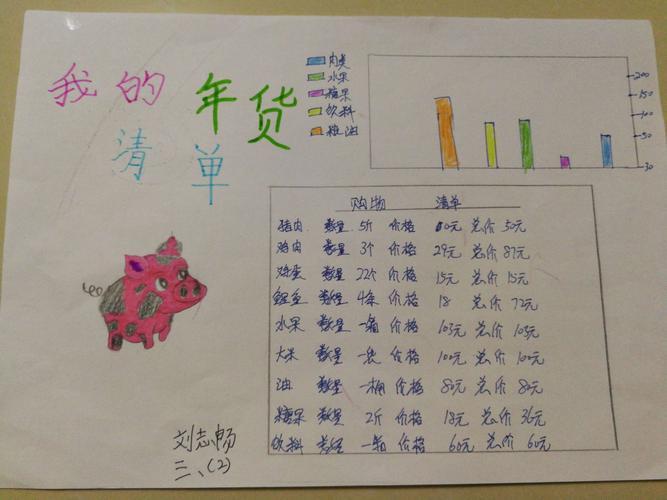 我的年货
清单
肉类
水果
糖果
饮料
粮油
200
150
100
50
30
购物 清单
猪肉 数量 5斤 价格 10元 总价 50元
鸡肉 数量 3个 价格 29元 总价 87元
鸡蛋 数量 22个 价格 15元 总价 15元
鲤鱼 数量 4条 价格 18 总价 72元
水果 数量 一箱 价格 103元 总价 103元
大米 数量 一袋 价格 100元 总价 100元
油 数量 一桶 价格 80元 总价 80元
糖果 数量 2斤 价格 18元 总价 36元
饮料 数量 一箱 价格 60元 总价 60元
刘志畅
三、(2)